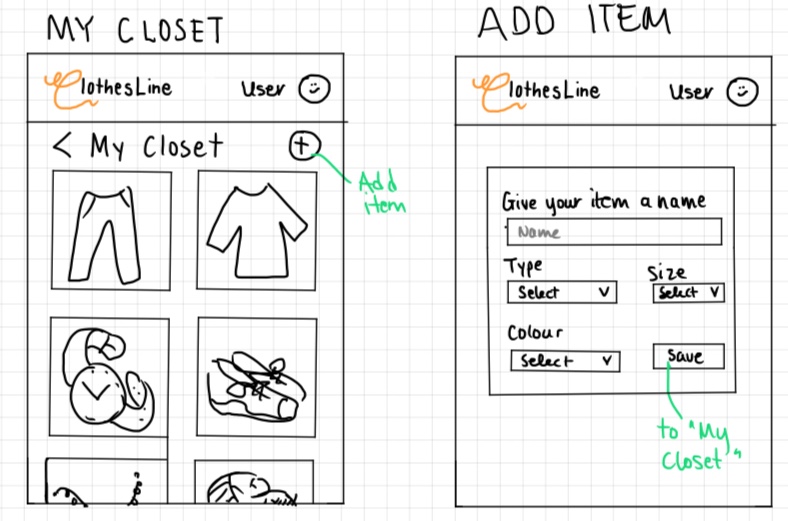 MY CLOSET
ClothesLine User
< My Closet +
Add
item
ADD ITEM
ClothesLine User
Give your item a name
Name
Type
Size
Select V
Select V
Colour
Select V
Save
to "My
Closet"